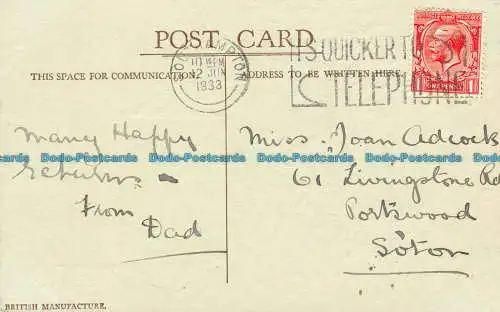 POST CARD
THIS SPACE FOR COMMUNICATION.
ADDRESS TO BE WRITTEN HERE.
SOUTHAMPTON
12 JUN
1933
ITS QUICKER TO
TELEPHONE
ONE PENNY
Many Happy
Returns
From
Dad
Miss. Joan Adcock
61 Livingstone Rd
Portswood
Soton
Dodo-Postcards Dodo-Postcards Dodo-Postcards Dodo-Postcards Dodo-Postcards
BRITISH MANUFACTURE.